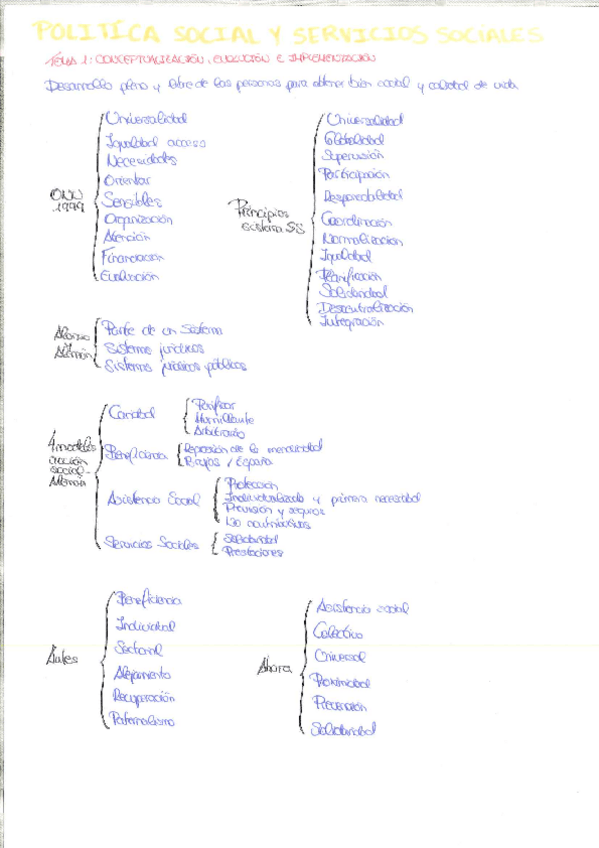 POLÍTICA SOCIAL Y SERVICIOS SOCIALES
TEMA 1: CONCEPTUALIZACIÓN, EVOLUCIÓN E IMPLEMENTACIÓN
Desarrollo pleno y libre de las personas para obtener bien social y calidad de vida
ONU 1999
Universalidad
Igualdad acceso
Necesidades
Orientar
Sensibles
Organización
Atención
Financiación
Evaluación
Principios sistema SS
Universalidad
Globalidad
Supervisión
Participación
Responsabilidad
Coordinación
Normalización
Igualdad
Planificación
Solidaridad
Descentralización
Integración
Alemán
Parte de un sistema
Sistema jurídicos
Sistemas jurídicos públicos
4 modelos acción social - Alemán
Caridad
Purificar
Humillante
Arbitrario
Beneficencia
Represión de la mendicidad
Brujas / España
Asistencia Social
Protección
Individualizado y primera necesidad
Previsión y seguros
Servicios Sociales
Solidaridad
Prestaciones
Antes
Beneficencia
Individual
Sectorial
Alejamiento
Recuperación
Paternalismo
Ahora
Asistencia social
Colectivo
Universal
Proximidad
Prevención
Solidaridad